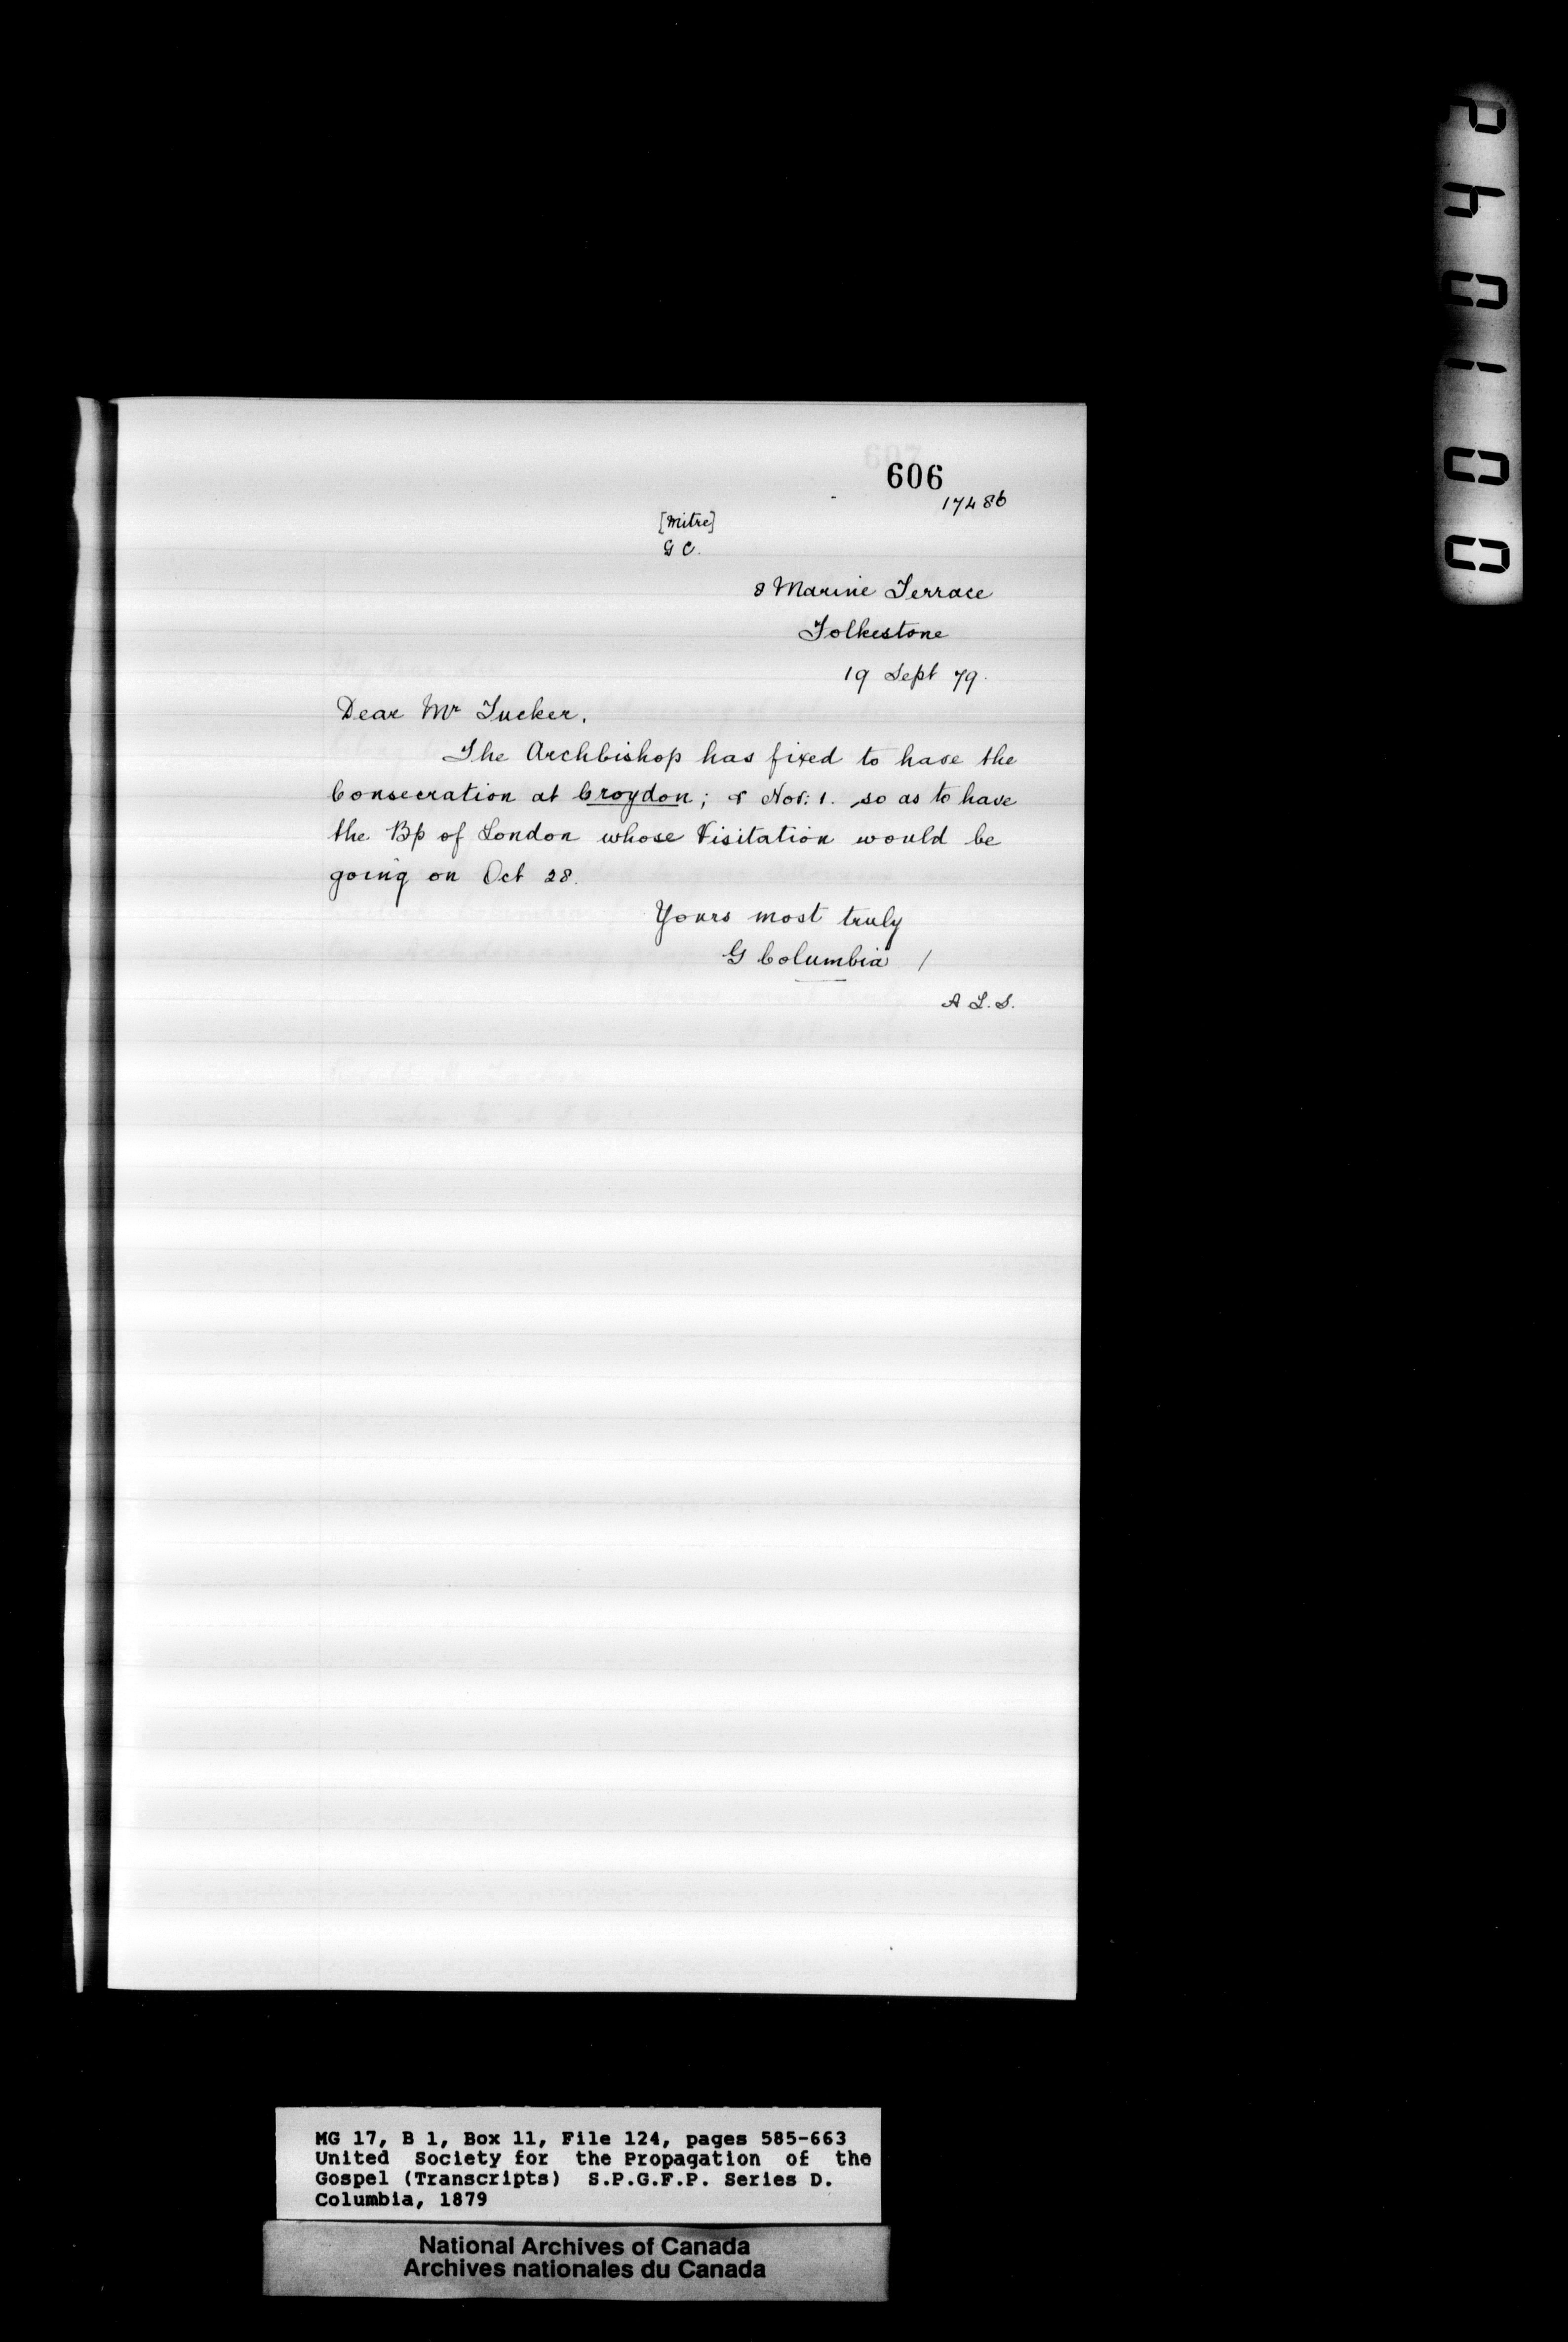 606
17486
[Mitre]
G C.
8 Marine Terrace
Folkestone
19 Sept 79.
Dear Mr Tucker,
The Archbishop has fixed to have the
Consecration at Croydon; & Nov: 1. so as to have
the Bp of London whose Visitation would be
going on Oct 28.
Yours most truly
G Columbia /
A L. S.
MG 17, B 1, Box 11, File 124, pages 585-663
United Society for the Propagation of the
Gospel (Transcripts) S.P.G.F.P. Series D.
Columbia, 1879
National Archives of Canada
Archives nationales du Canada